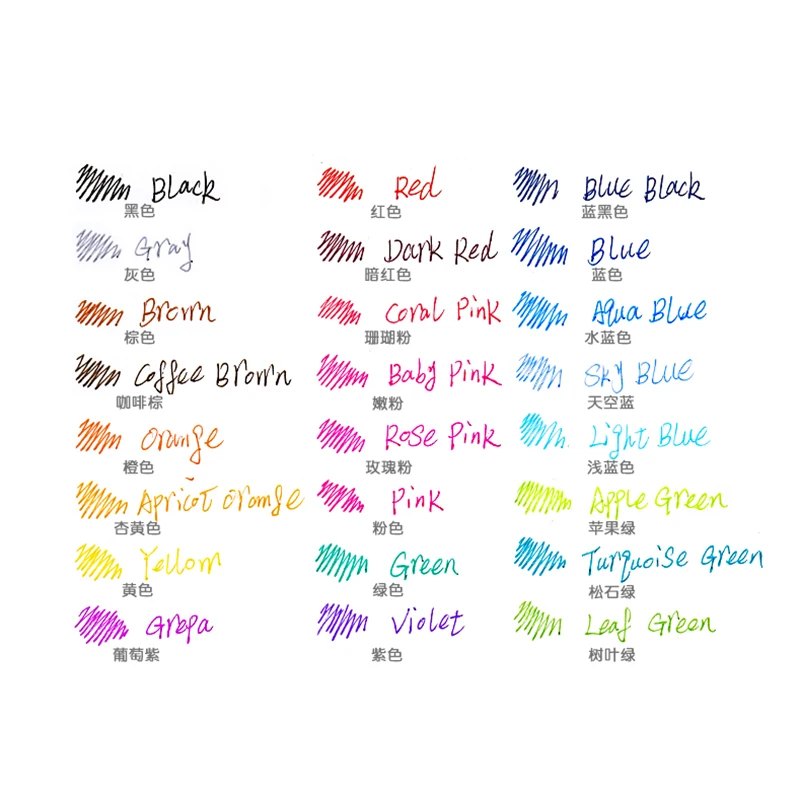 Black
黑色
Gray
灰色
Brown
棕色
Coffee Brown
咖啡棕
Orange
橙色
Apricot Orange
杏黄色
Yellow
黄色
Grepa
葡萄紫
Red
红色
Dark Red
暗红色
Coral Pink
珊瑚粉
Baby Pink
嫩粉
Rose Pink
玫瑰粉
Pink
粉色
Green
绿色
Violet
紫色
Blue Black
蓝黑色
Blue
蓝色
Aqua Blue
水蓝色
Sky Blue
天空蓝
Light Blue
浅蓝色
Apple Green
苹果绿
Turquoise Green
松石绿
Leaf Green
树叶绿